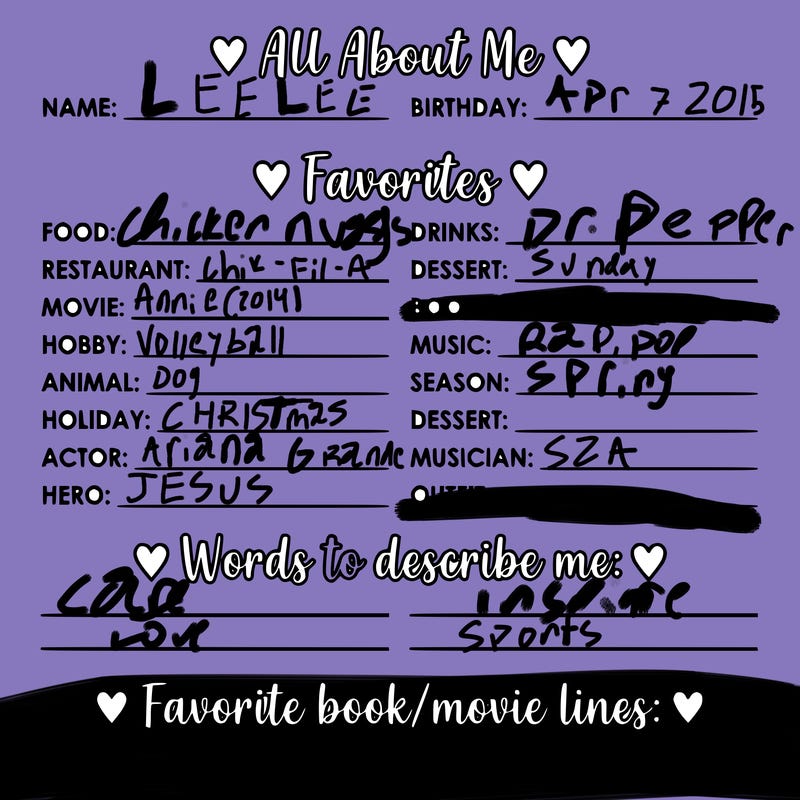 All About Me
NAME: LEELEE BIRTHDAY: Apr 7 2015
Favorites
FOOD: Chicken nuggs DRINKS: Dr. Pepper
RESTAURANT: Chik-Fil-A DESSERT: Sunday
MOVIE: Annie (2014)
HOBBY: Volleyball MUSIC: Rap, pop
ANIMAL: Dog SEASON: Spring
HOLIDAY: CHRISTmas DESSERT:
ACTOR: Ariana Grande MUSICIAN: SZA
HERO: JESUS
Words to describe me:
Love Sports
Favorite book/movie lines: